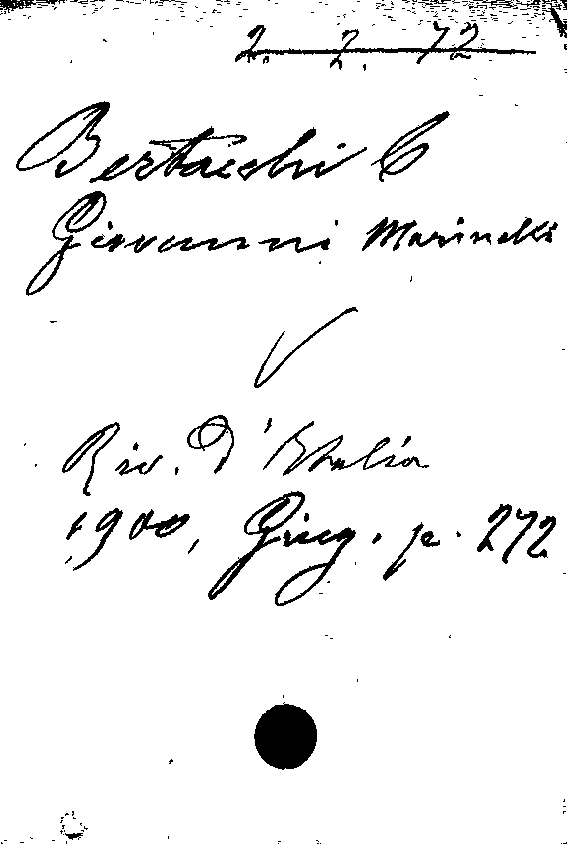 2. 2. 72
Bertacchi C
Giovanni Marinelli
Riv. d'Italia
1900, Giug. p. 272